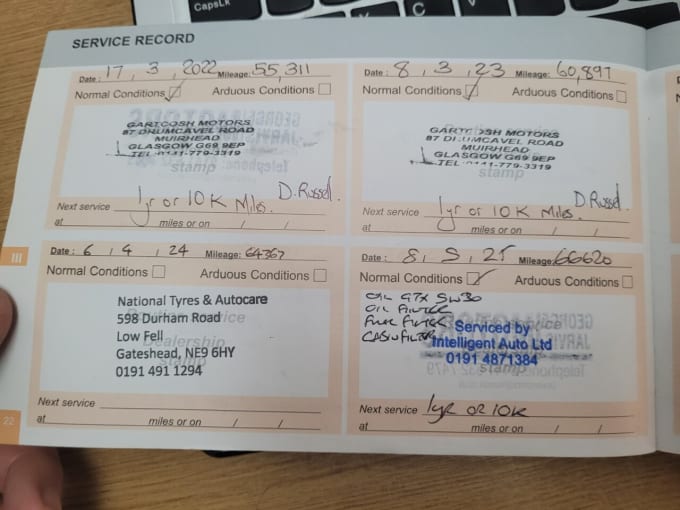 CapsLk
SERVICE RECORD
Date: 17, 3, 2022 Mileage: 55,311
Normal Conditions Arduous Conditions
GARTCOSH MOTORS
87 DRUMCAVEL ROAD
MUIRHEAD
GLASGOW G69 9EP
TEL 0141-779-3319
stamp
D. Russel.
Next service 1yr or 10K Miles.
at miles or on / /
Date: 8, 3, 23 Mileage: 60,897
Normal Conditions Arduous Conditions
GARTCOSH MOTORS
87 DRUMCAVEL ROAD
MUIRHEAD
GLASGOW G69 9EP
TEL 0141-779-3319
stamp
D Russel.
Next service 1yr or 10K Miles.
at miles or on / /
III
Date: 6, 4, 24 Mileage: 64367
Normal Conditions Arduous Conditions
National Tyres & Autocare
598 Durham Road
Low Fell
Gateshead, NE9 6HY
0191 491 1294
Next service
at miles or on / /
Date: 8, 5, 25 Mileage: 66620
Normal Conditions Arduous Conditions
OIL GTX 5W30
OIL FILTER
FUEL FILTER
CABIN FILTER
Serviced by
Intelligent Auto Ltd
0191 4871384
stamp
Next service 1yr OR 10K
at miles or on / /
22